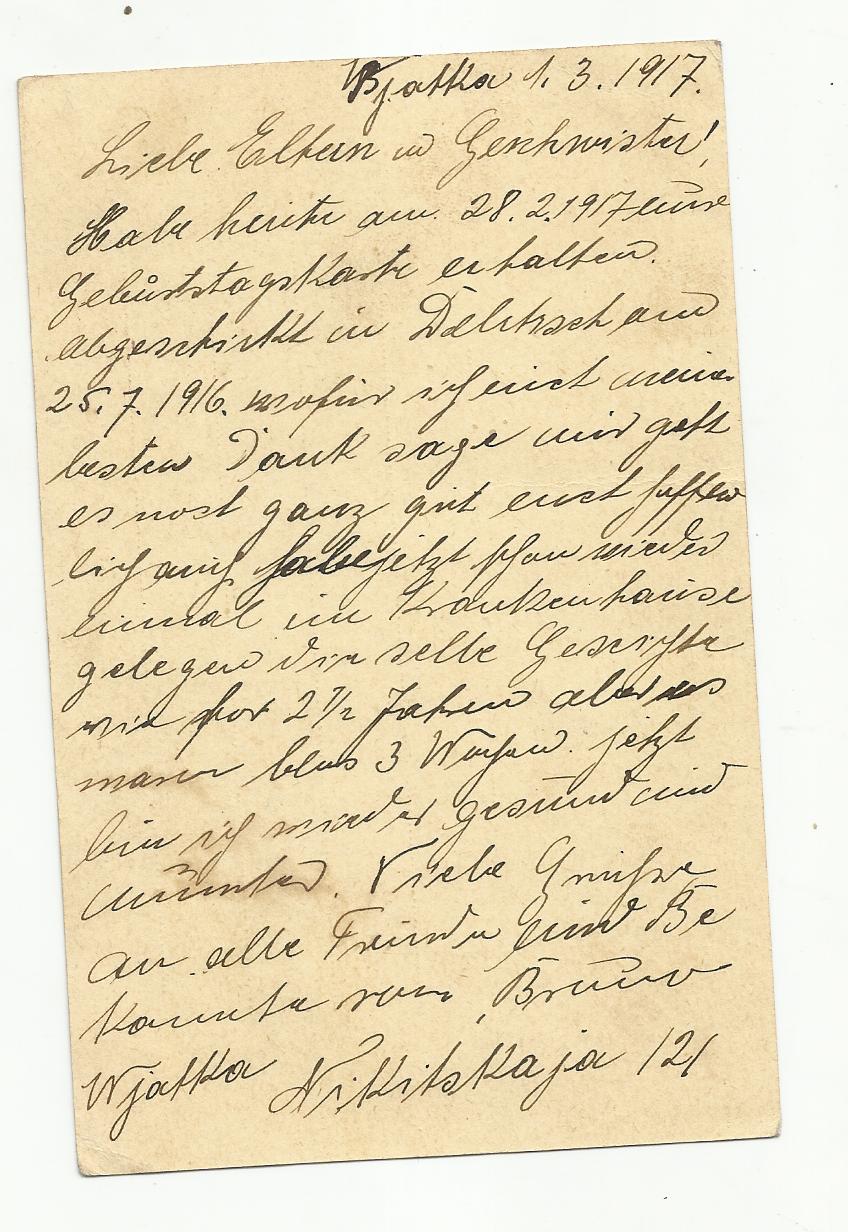 Wjatka 1. 3. 1917.
Liebe Eltern u Geschwister!
Habe heute am 28. 2. 1917 eure
Geburtstagskarte erhalten.
abgeschickt in Delitzsch am
25. 7. 1916. wofür ich euch meinen
besten Dank sage mir geht
es noch ganz gut euch hoffen
lich auch habe jetzt schon wieder
einmal im Krankenhause
gelegen die selbe Geschichte
wie vor 2 1/2 Jahren aber es
waren blos 3 Wochen. jetzt
bin ich wieder gesund und
munter. Viele Grüsse
an alle Freunde und Be
kannte von Bruno
Wjatka Nikitskaja 121